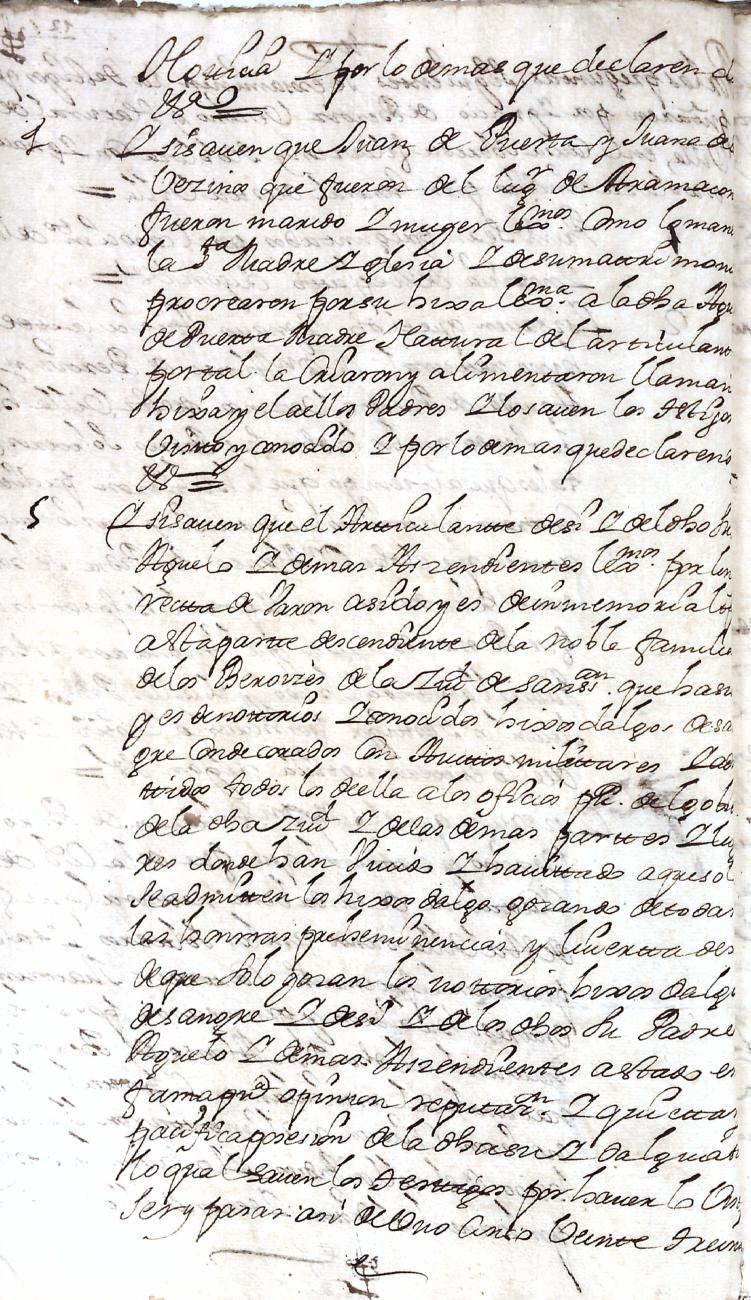 Noticia Y por lo demas que declaren
&ª
4
Y si sauen que Juan de Puerta y Juana de
Vezinos que fueron del lugr de Aramaio
fueron marido Y muger lexmos. Como lo man
la Sta Madre Yglesia Y de su mattrimon
procrearon por su hixa lexma. a la dha
de Puerta Madre Nattural del articulant
por tal la Criaron y alimentaron llaman
hixa y el a ellos Padres Y lo sauen los testigos
Visto y conozido Y por lo demas que declaren
&ª
5
Y si sauen que el Artticulantte de si Y del dho
Aguelo Y demas Aszendientes lexmos. por lin
rectta de Varon a sido y es de inmemorial
a esta partte descendientte de la noble famili
de los Beroviès de la Ziud de San ssan. que han
y es de nottorios Y conozidos hixos dalgo de sa
gre Condecorados Con Auittos milittares Y ad
ttidos todos los de ella a los oficios ppcos. del gobi
de la dha Ziud Y de las demas parttes Y lu
res donde han Viuido Y hauittado a que solo
se admitten los hixos dalgo gozando de todas
las honrras prehemiinencias y liuerttades
de que solo gozan los nottorios hixos dalgo
de sangre Y de si Y de los dhos su Padre
Aguelo Y demas Aszendientes a estado en
fama ppca opinion reputtazn. Y quietta
pacifica posesion de la dha su Ydalguia
lo qual sauen los testtigos por hauerlo Vis
ser y pasar asi de Uno Cinco Veintte treint